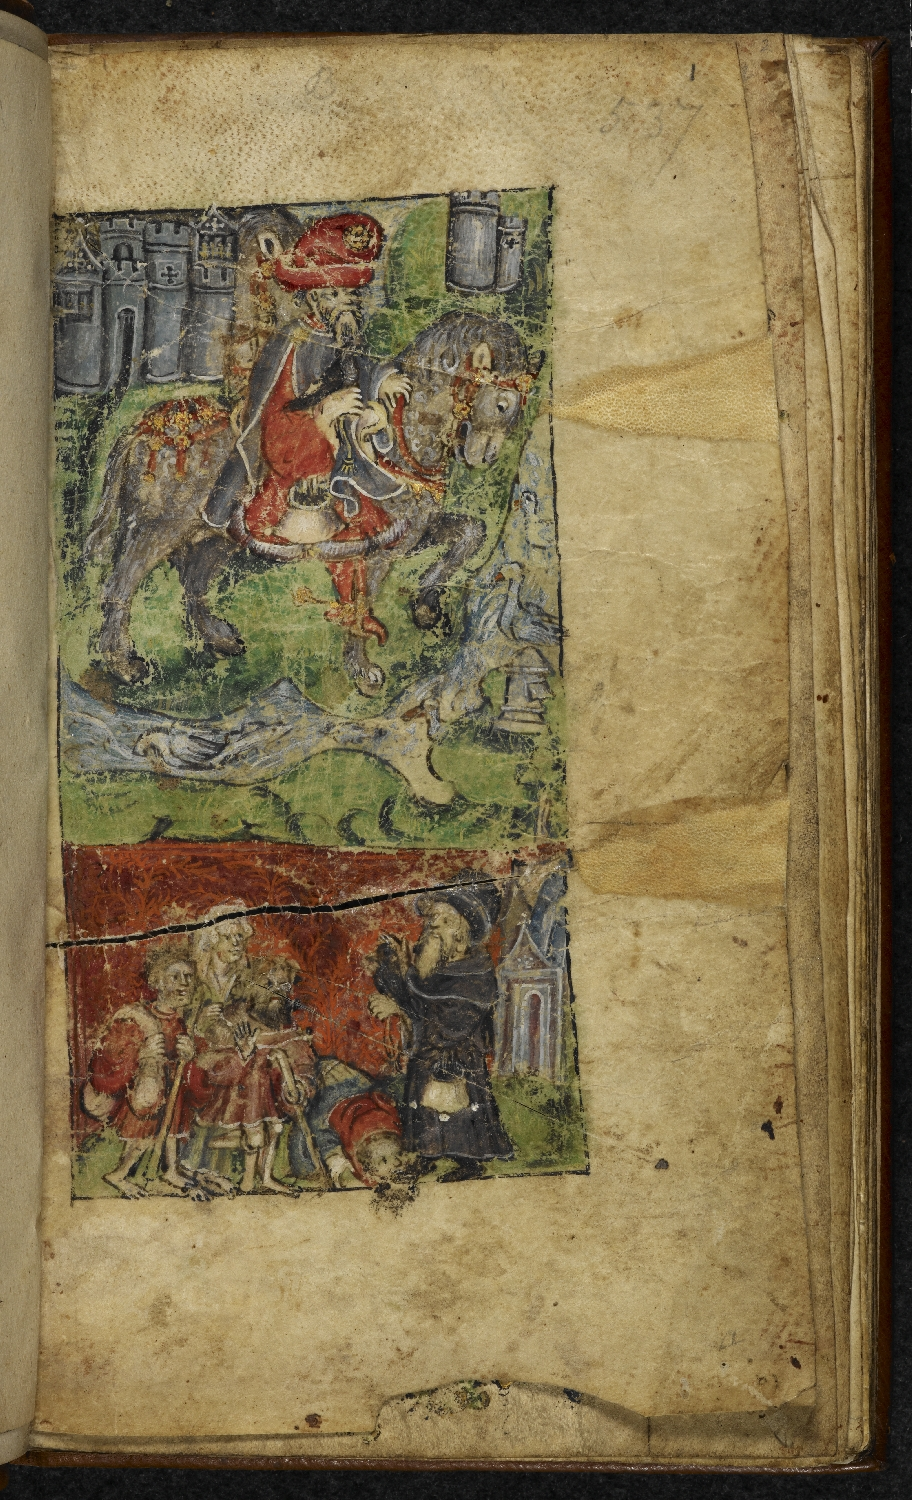 1
5537